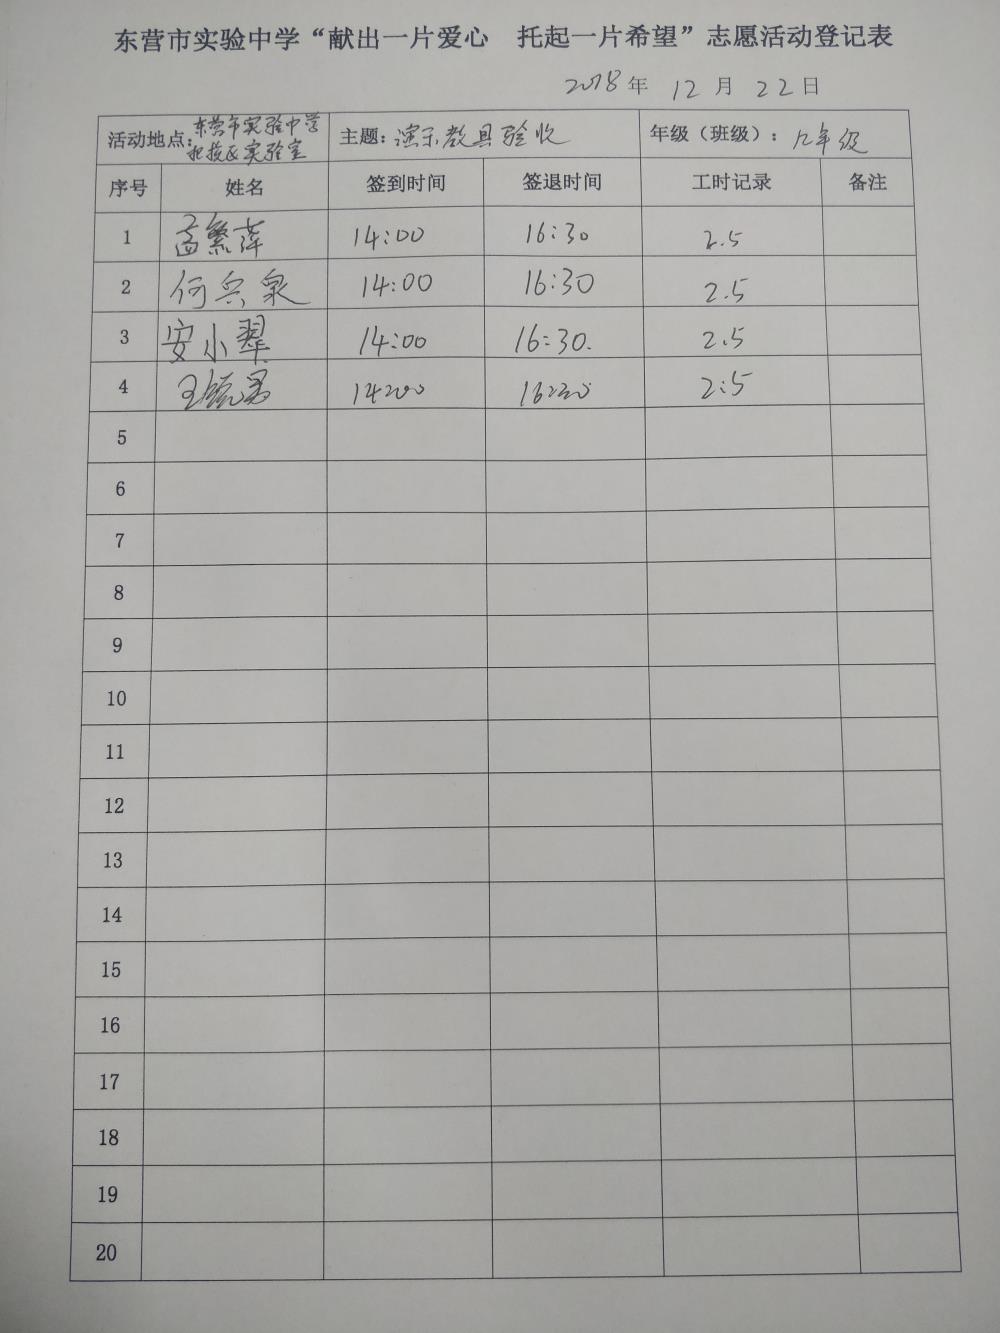 东营市实验中学“献出一片爱心 托起一片希望”志愿活动登记表
2018年 12月 22日
活动地点：东营市实验中学 实验室 主题：演示教具验收 年级（班级）：九年级
序号 姓名 签到时间 签退时间 工时记录 备注
1 孟繁萍 14:00 16:30 2.5
2 何兴泉 14:00 16:30 2.5
3 安小翠 14:00 16:30. 2.5
4 王 14:00 16:30 2:5
5
6
7
8
9
10
11
12
13
14
15
16
17
18
19
20